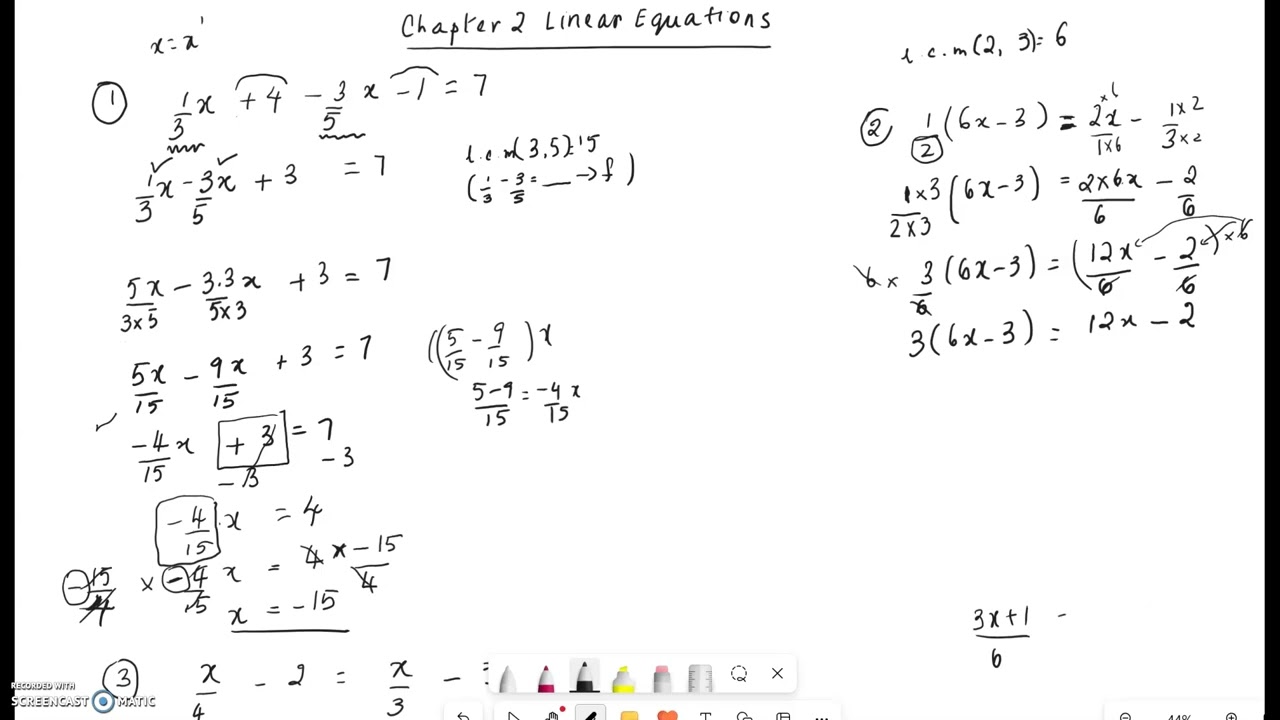 Chapter 2 Linear Equations
x = x¹
① 1/3 x + 4 - 3/5 x - 1 = 7
1/3 x - 3x/5 + 3 = 7
l.c.m(3,5):15
(1/3 - 3/5 = __ → f)
5x/3x5 - 3.3x/5x3 + 3 = 7
5x/15 - 9x/15 + 3 = 7
((5/15 - 9/15) x
5-9/15 = -4/15 x
-4/15 x + 3 = 7
-3 -3
-4/15 x = 4
-15/4 x -4/15 x = 4 x -15/4
x = -15
③ x/4 - 2 = x/3 -
l.c.m(2, 3) = 6
② 1/2 (6x - 3) = 2x x6/1x6 - 1x2/3x2
1x3/2x3 (6x - 3) = 2x6x/6 - 2/6
6 x 3/6 (6x - 3) = (12x/6 - 2/6) x 6
3(6x - 3) = 12x - 2
3x+1/6 -
RECORDED WITH
SCREENCAST MATIC
44%